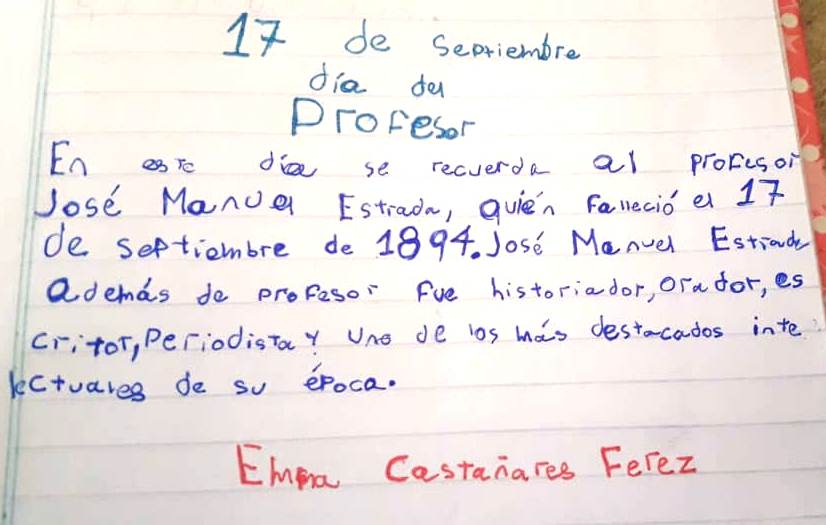 17 de Septiembre
día del
Profesor
En este día se recuerda al profesor
José Manuel Estrada, quién falleció el 17
de septiembre de 1894. José Manuel Estrada
además de profesor fue historiador, orador, es
critor, periodista y uno de los más destacados inte
lectuales de su época.
Emma Castañares Ferez